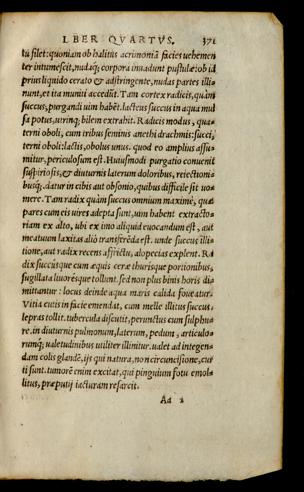 LBER QVARTVS. 371
tu filet: quoniam ob halitus acrimoniã facies vehemen
ter intumescit, nudaq́; corpora inuadunt pustulæ: ob id
prius liquido cerato & adstringente, nudas partes illi-
nunt, et ita muniti accedũt. Tam cortex radicis, quàm
succus, purgandi uim habẽt. lacteus succus in aqua mul
sa potus, utrinq; bilem extrahit. Radicis modus, qua-
terni oboli, cum tribus seminis anethi drachmis: succi,
terni oboli: lactis, obolus unus. quod eo amplius assu-
mitur, periculosum est. Huiusmodi purgatio conuenit
suspiriosis, & diuturnis laterum doloribus, reiectioni-
busq́;. datur in cibis aut obsonio, quibus difficile sit uo-
mere. Tam radix quàm succus omnium maximè, quæ
pares cum eis uires adepta sunt, uim habent extracto-
riam ex alto, ubi ex imo aliquid euocandum est, aut
meatuum laxitas aliò transferẽda est. unde succus illi-
tione, aut radix recens affrictu, alopecias explent. Ra
dix succusque cum æquis ceræ thurisque portionibus,
sugillata liuoresque tollunt. sed non plus binis horis di-
mittantur: locus deinde aqua maris calida foueatur.
Vitia cutis in facie emendat, cum melle illitus succus.
lepras tollit. tubercula discutit, perunctus cum sulphu-
re. in diuturnis pulmonum, laterum, pedum, articulo-
rumq́; ualetudinibus utiliter illinitur. ualet ad integen-
dam colis glandẽ, ijs qui natura, non circuncisione, cur
ti sunt. tumorẽ enim excitat, qui pinguium fotu emol-
litus, præputij iacturam resarcit.
Aa 2